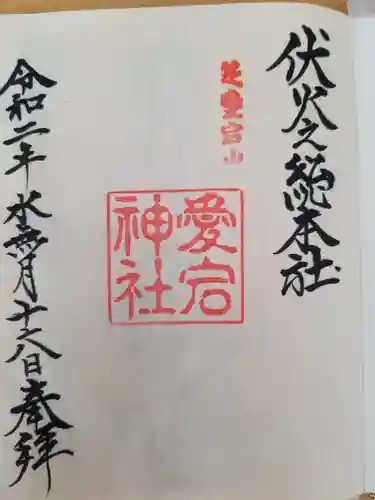 伏火之総本社
愛宕山
愛宕
神社
令和二年水無月十六日奉拝